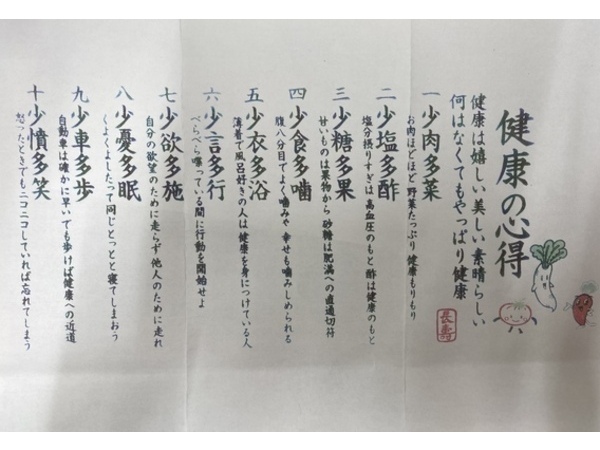 健康の心得
健康は嬉しい美しい素晴らしい
何はなくてもやっぱり健康
長寿
一 少肉多菜
お肉ほどほど 野菜たっぷり 健康もりもり
二 少塩多酢
塩分摂りすぎは高血圧のもと 酢は健康のもと
三 少糖多果
甘いものは果物から 砂糖は肥満への直通切符
四 少食多噛
腹八分目でよく噛みゃ 幸せも噛みしめられる
五 少衣多浴
薄着で風呂好きの人は 健康を身につけている人
六 少言多行
べらべら喋っている間に行動を開始せよ
七 少欲多施
自分の欲望のために走らず 他人のために走れ
八 少憂多眠
くよくよしたって同じ とっとと寝てしまおう
九 少車多歩
自動車は確かに早いでも歩けば健康への近道
十 少憤多笑
怒ったときでもニコニコしていれば忘れてしまう